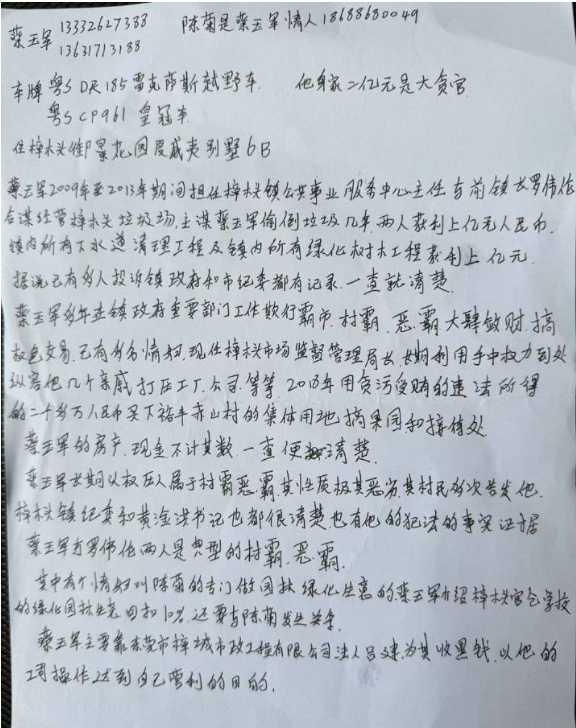 蔡玉军 13332627388 陈菊是蔡玉军情人 18688680049
13631713188
车牌 粤S DR185 雷克萨斯越野车. 他身家二亿元是大贪官
粤S CP961 皇冠车
住樟木头御景花园夏威夷别墅6B
蔡玉军2009年至2013年期间担任樟木头镇公共事业服务中心主任与前镇长罗伟伦
合谋经营樟木头垃圾场,主谋蔡玉军偷倒垃圾几年,两人获利上亿元人民币.
镇内所有下水道清理工程及镇内所有绿化树木工程获利上亿元.
据说已有多人投诉镇政府和市纪委都有记录.一查就清楚.
蔡玉军多年在镇政府重要部门工作欺行霸市,村霸.恶霸大肆敛财.搞
权色交易.已有多名情妇,现任樟木市场监督管理局长,长期利用手中权力到处
纵容他几个亲戚打压工厂.公司.等等 2013年用贪污受贿的违法所得
的二千多万人民币买下裕丰赤山村的集体用地搞果园和接待处.
蔡玉军的房产.现金不计其数.一查便清楚.
蔡玉军长期以权压人属于村霸恶霸,其性质极其恶劣.其村民多次告发他.
樟木头镇纪委和黄淦洪书记也都很清楚也有他的犯法的事实证据
蔡玉军与罗伟伦两人是典型的村霸.恶霸.
其中有个情妇叫陈菊的专门做园林绿化生意的.蔡玉军介绍樟木头官仓学校
的绿化园林生意回扣10%还要与陈菊发生关系.
蔡玉军主要靠东莞市樟城市政工程有限公司法人吕建为其收黑钱.以他的
公司操作达到自己营利的目的.